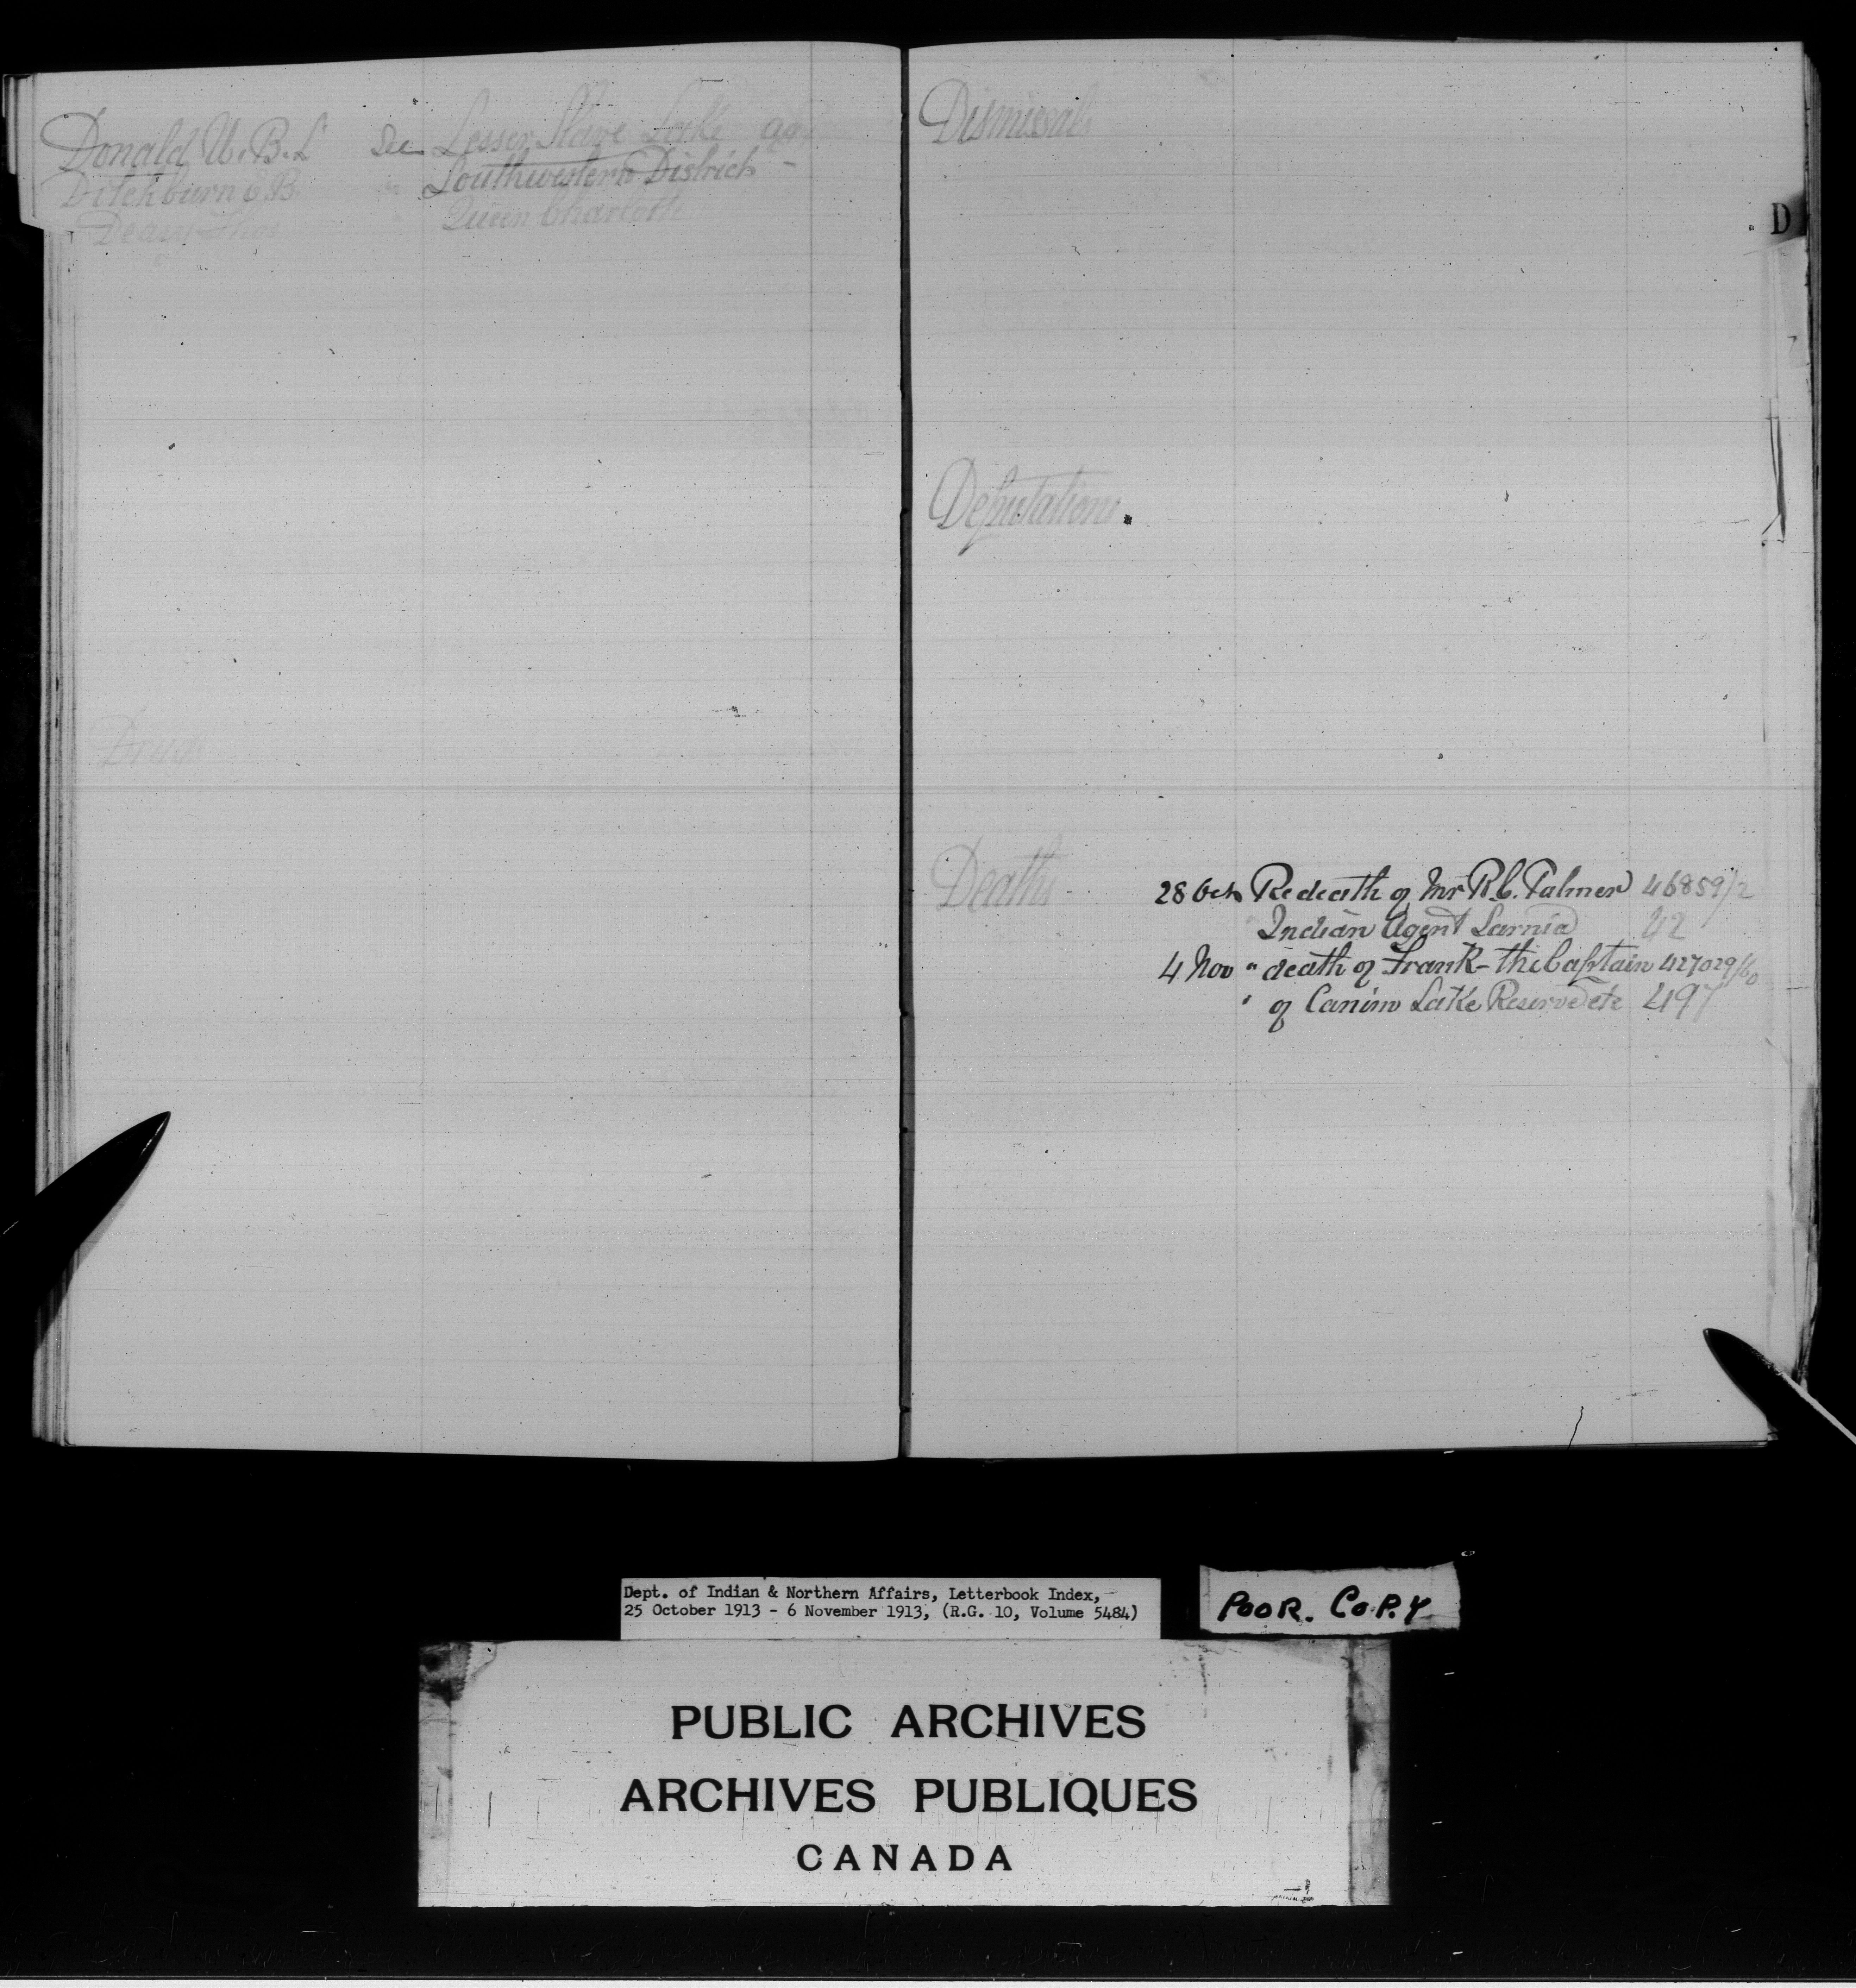 Donald W. B. L. See Lesser Slave Lake Agy
Ditchburn E. B. " Southwestern District -
Deasy Thos " Queen Charlotte
Drugs
Dismissals
D
Deputations.
Deaths 28 Oct Re death of Mr R. C. Palmer 46859/2
Indian Agent Sarnia 42
4 Nov " death of Frank - the Captain 427029/60
" of Canim Lake Reserve etc 497
Dept. of Indian & Northern Affairs, Letterbook Index,
25 October 1913 - 6 November 1913, (R.G. 10, Volume 5484)
POOR. COPY
PUBLIC ARCHIVES
ARCHIVES PUBLIQUES
CANADA